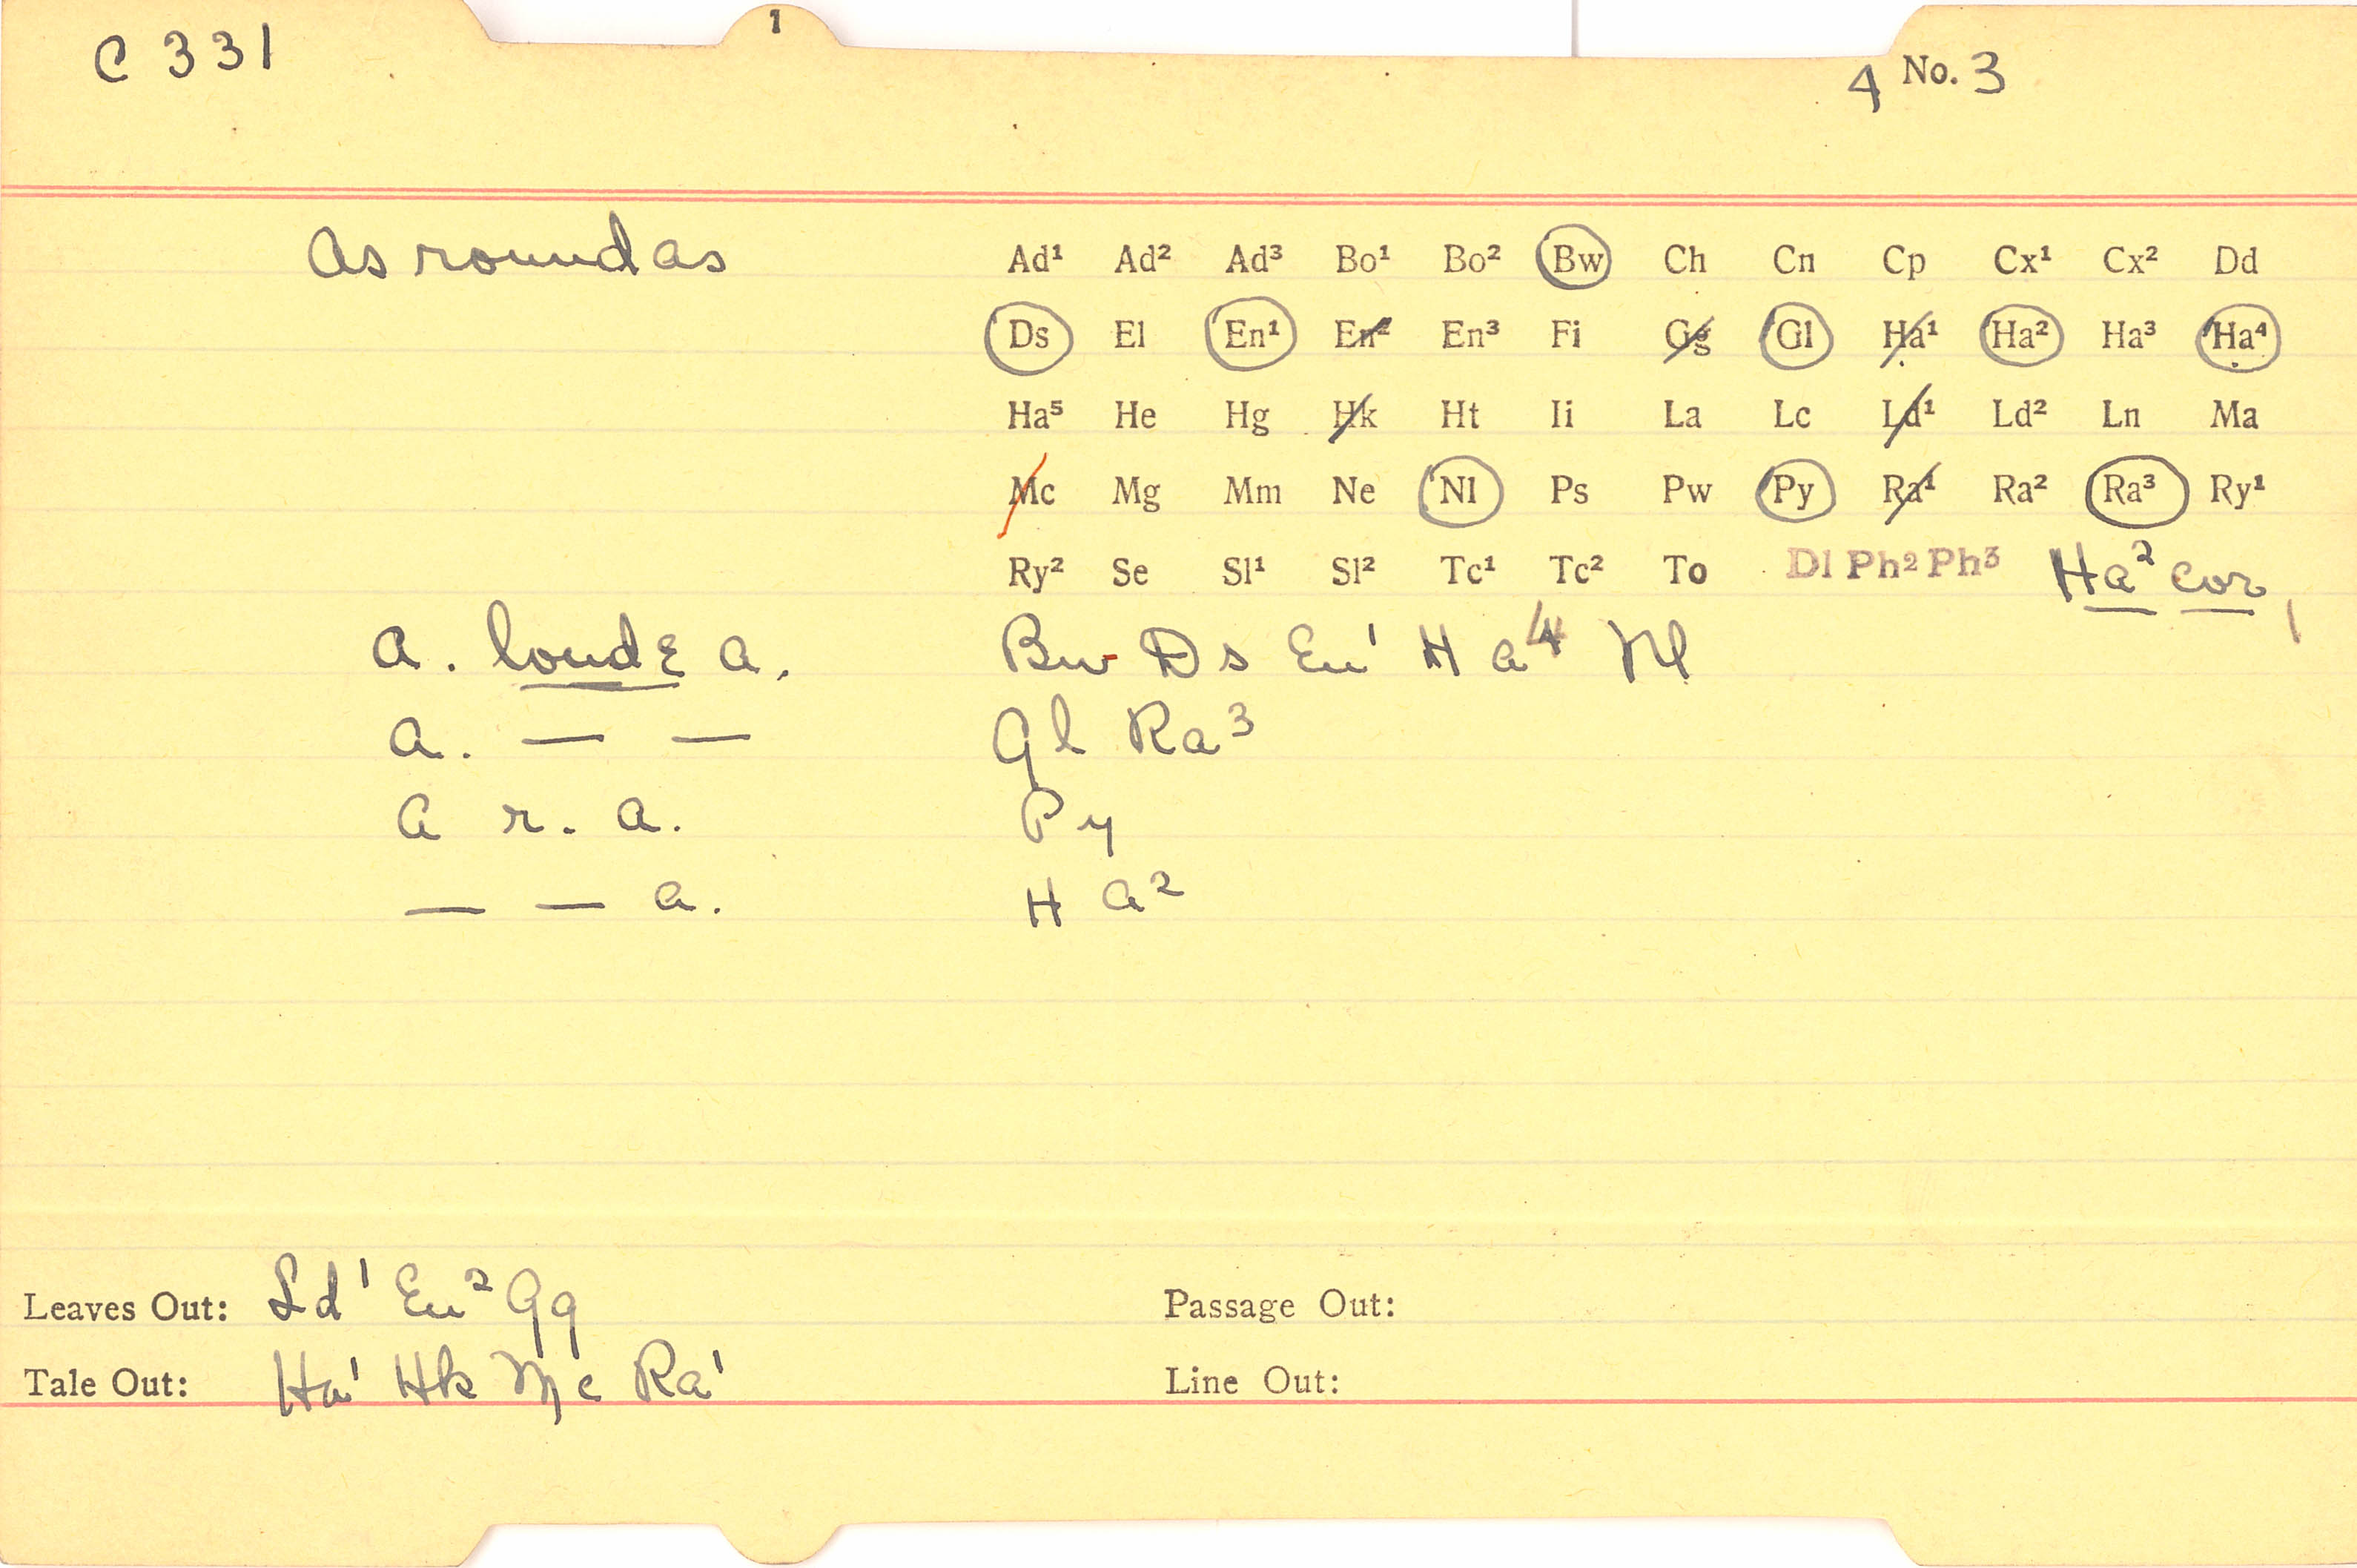 1
C 331
4 No. 3
As round as
Ad¹ Ad² Ad³ Bo¹ Bo² Bw Ch Cn Cp Cx¹ Cx² Dd
Ds El En¹ En² En³ Fi Gg Gl Ha¹ Ha² Ha³ Ha⁴
Ha⁵ He Hg Hk Ht Ii La Lc Ld¹ Ld² Ln Ma
Mc Mg Mm Ne Nl Ps Pw Py Ra¹ Ra² Ra³ Ry¹
Ry² Se Sl¹ Sl² Tc¹ Tc² To Dl Ph² Ph³ Ha² cor
a. loude a. Bw Ds En¹ Ha⁴ Nl
a. — — Gl Ra³
a r. a. Py
— — a. Ha²
Leaves Out: Ld¹ En² Gg
Passage Out:
Tale Out: Ha¹ Hk Mc Ra¹
Line Out: